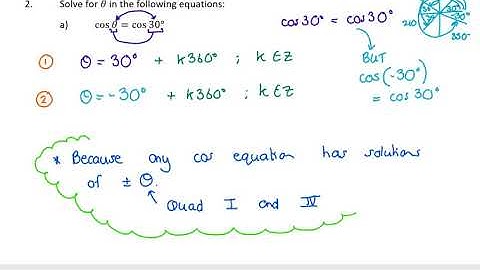 2. Solve for θ in the following equations:
a) cos θ = cos 30°
cos 30° = cos 30°
BUT
cos(-30°)
= cos 30°
① θ = 30° + k360° ; k ∈ Z
② θ = -30° + k360° ; k ∈ Z
* Because any cos equation has solutions
of ± θ.
Quad I and IV
30°
30°
210
330°